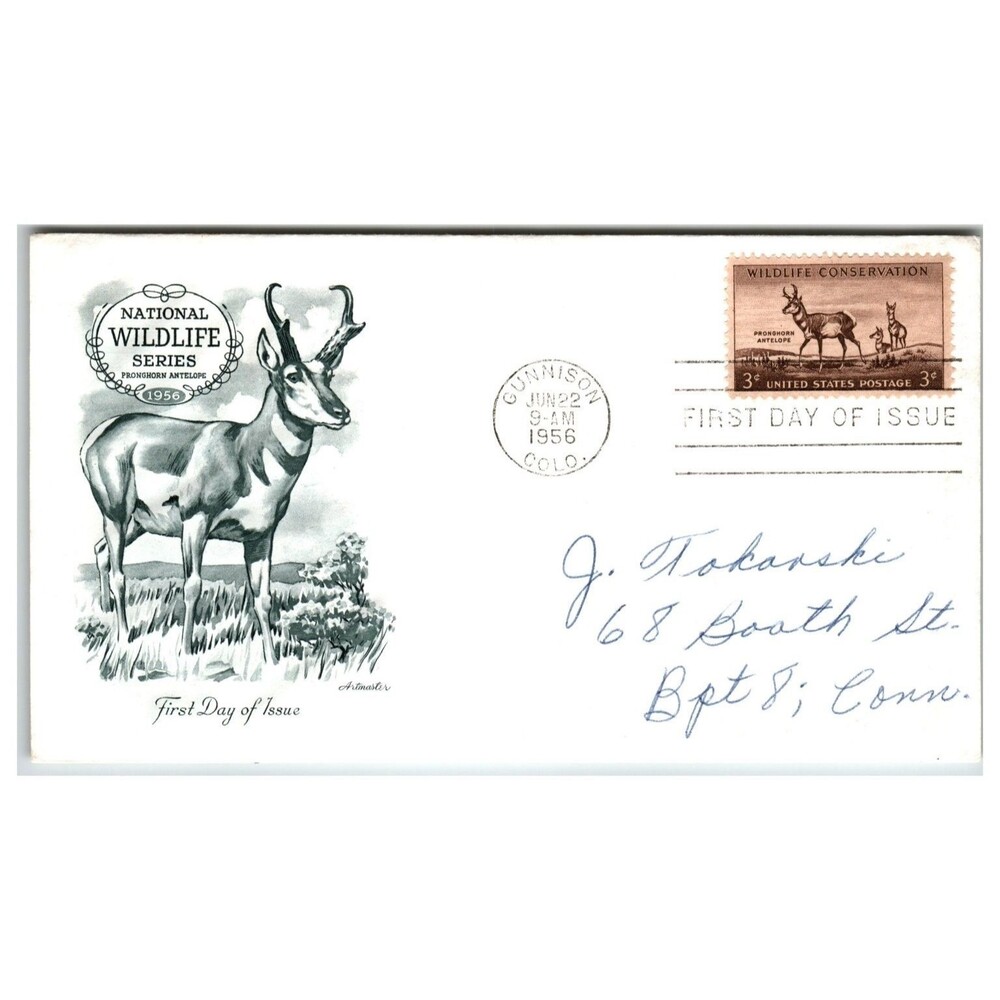 NATIONAL
WILDLIFE
SERIES
PRONGHORN ANTELOPE
1956
Artmaster
First Day of Issue
GUNNISON
JUN 22
9-AM
1956
COLO.
WILDLIFE CONSERVATION
PRONGHORN
ANTELOPE
3¢ UNITED STATES POSTAGE 3¢
FIRST DAY OF ISSUE
J. Tokarski
68 Booth St.
Bpt 8; Conn.